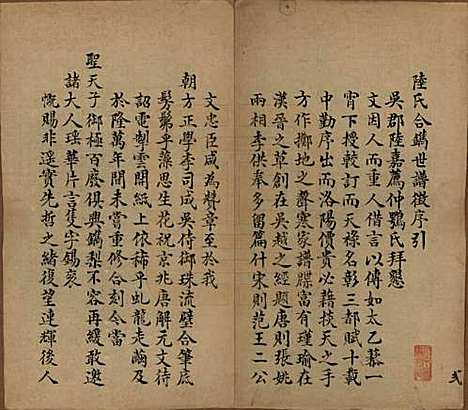 陸氏合鐫世譜徵序引
吳郡陸嘉薦仲鶚氏拜懇
文因人而重人借言以傳如太乙藜一
宵下授較訂而天祿名彰三都賦十載
中勤序出而洛陽價貴必藉掞天之手
方作擲地之聲寒家譜牒富有瑾瑜在
漢晉之草創在吳越之經題唐則張姚
兩相李供奉多留篇什宋則范王二公
文忠臣咸為贊章至於我
朝方正學李司成吳侍御珠流璧合筆底
鬚鬍乎藻思生花祝京兆唐解元文待
詔電掣雲開紙上依稀乎虬龍走繭及
於隆萬年間未嘗重修合刻今當
聖天子御極百廢俱興鐫梨不容再緩敢邀
諸大人瑤華片言隻字錫袞
慨賜非遙實先哲之緒復望連輝後人
弎